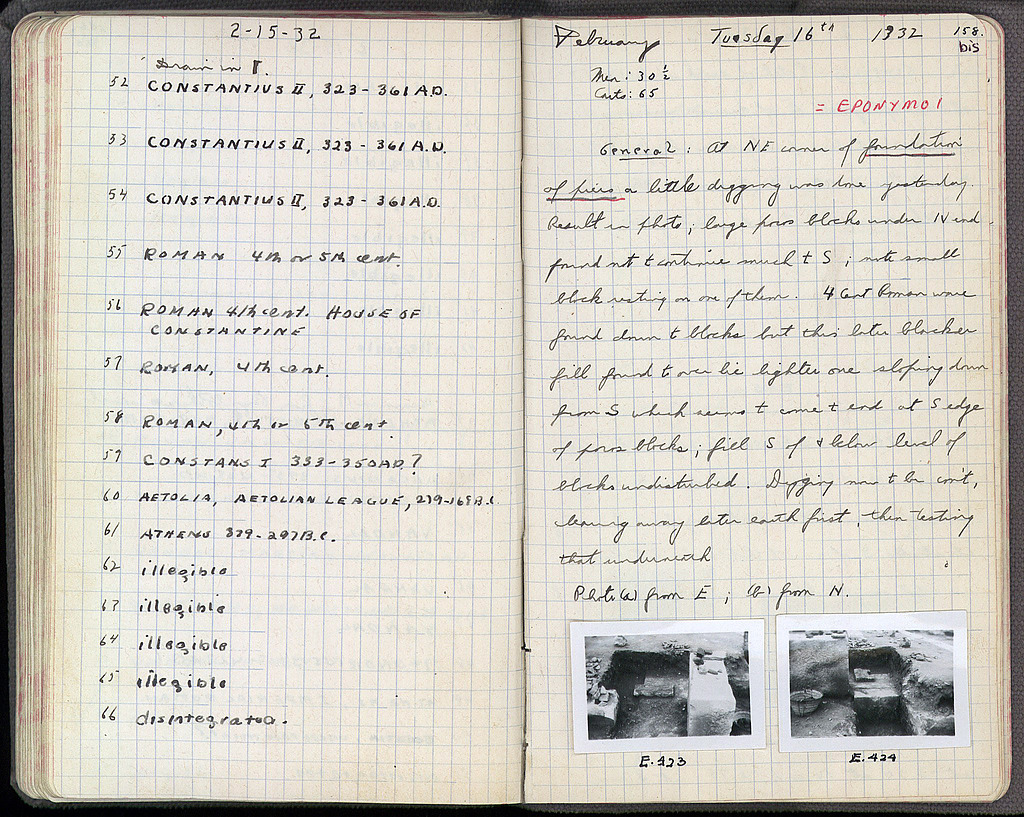 2-15-32
Drain in Γ.
52 CONSTANTIUS II, 323-361 A.D.
53 CONSTANTIUS II, 323-361 A.D.
54 CONSTANTIUS II, 323-361 A.D.
55 ROMAN 4th or 5th cent.
56 ROMAN 4th cent. HOUSE OF
CONSTANTINE
57 ROMAN, 4th cent.
58 ROMAN, 4th or 5th cent.
59 CONSTANS I 333-350 A.D.?
60 AETOLIA, AETOLIAN LEAGUE, 279-168 B.C.
61 ATHENS 339-297 B.C.
62 illegible
63 illegible
64 illegible
65 illegible
66 disintegrated.
February Tuesday 16th 1932 158.
bis
Men: 30 ½
Carts: 65
= EPONYMOI
General: At NE corner of foundation
of piers a little digging was done yesterday.
Result in photo; large poros blocks under N end
found not to continue much to S; note small
block resting on one of them. 4 Cent Roman ware
found down to blocks but this later blacker
fill found to over lie lighter one sloping down
from S which seems to come to end at S edge
of poros blocks; fill S of & below level of
blocks undisturbed. Digging now to be con't,
clearing away later earth first, then testing
that underneath
Photo (a) from E; (b) from N.
E.423 E.424